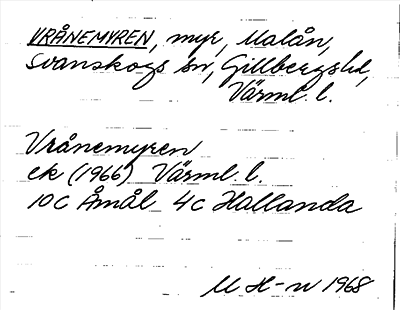 VRÅNEMYREN, myr, Ualån,
Svanskogs sn, Gillbergshd,
Värml. l.
Vrånemyren
ek (1966) Värml. l.
10C Åmål 4c Hallanda
M H-n 1968